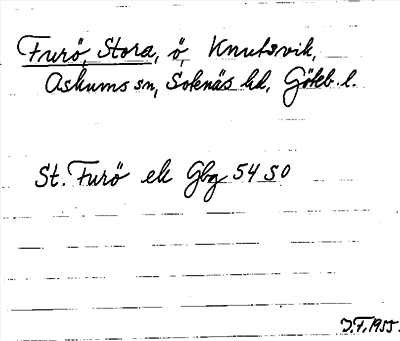 Furö, Stora, ö, Knutsvik,
Askums sn, Sotenäs hd, Göteb. l.
St. Furö ek Gbg 54 SO
J.F, 1955.